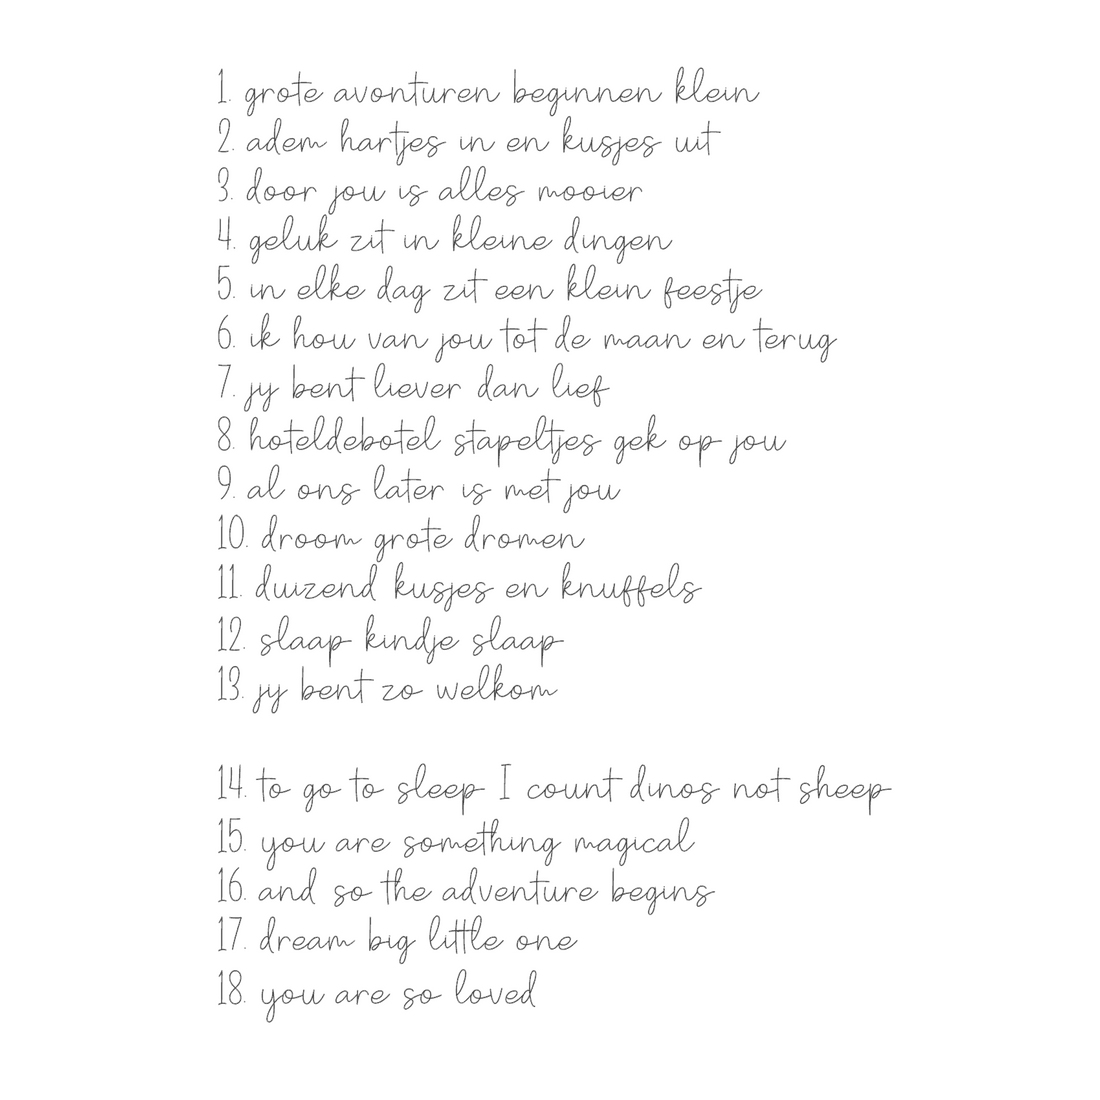 1. grote avonturen beginnen klein
2. adem hartjes in en kusjes uit
3. door jou is alles mooier
4. geluk zit in kleine dingen
5. in elke dag zit een klein feestje
6. ik hou van jou tot de maan en terug
7. jy bent liever dan lief
8. hoteldebotel stapeltjes gek op jou
9. al ons later is met jou
10. droom grote dromen
11. duizend kusjes en knuffels
12. slaap kindje slaap
13. jy bent zo welkom
14. to go to sleep I count dinos not sheep
15. you are something magical
16. and so the adventure begins
17. dream big little one
18. you are so loved